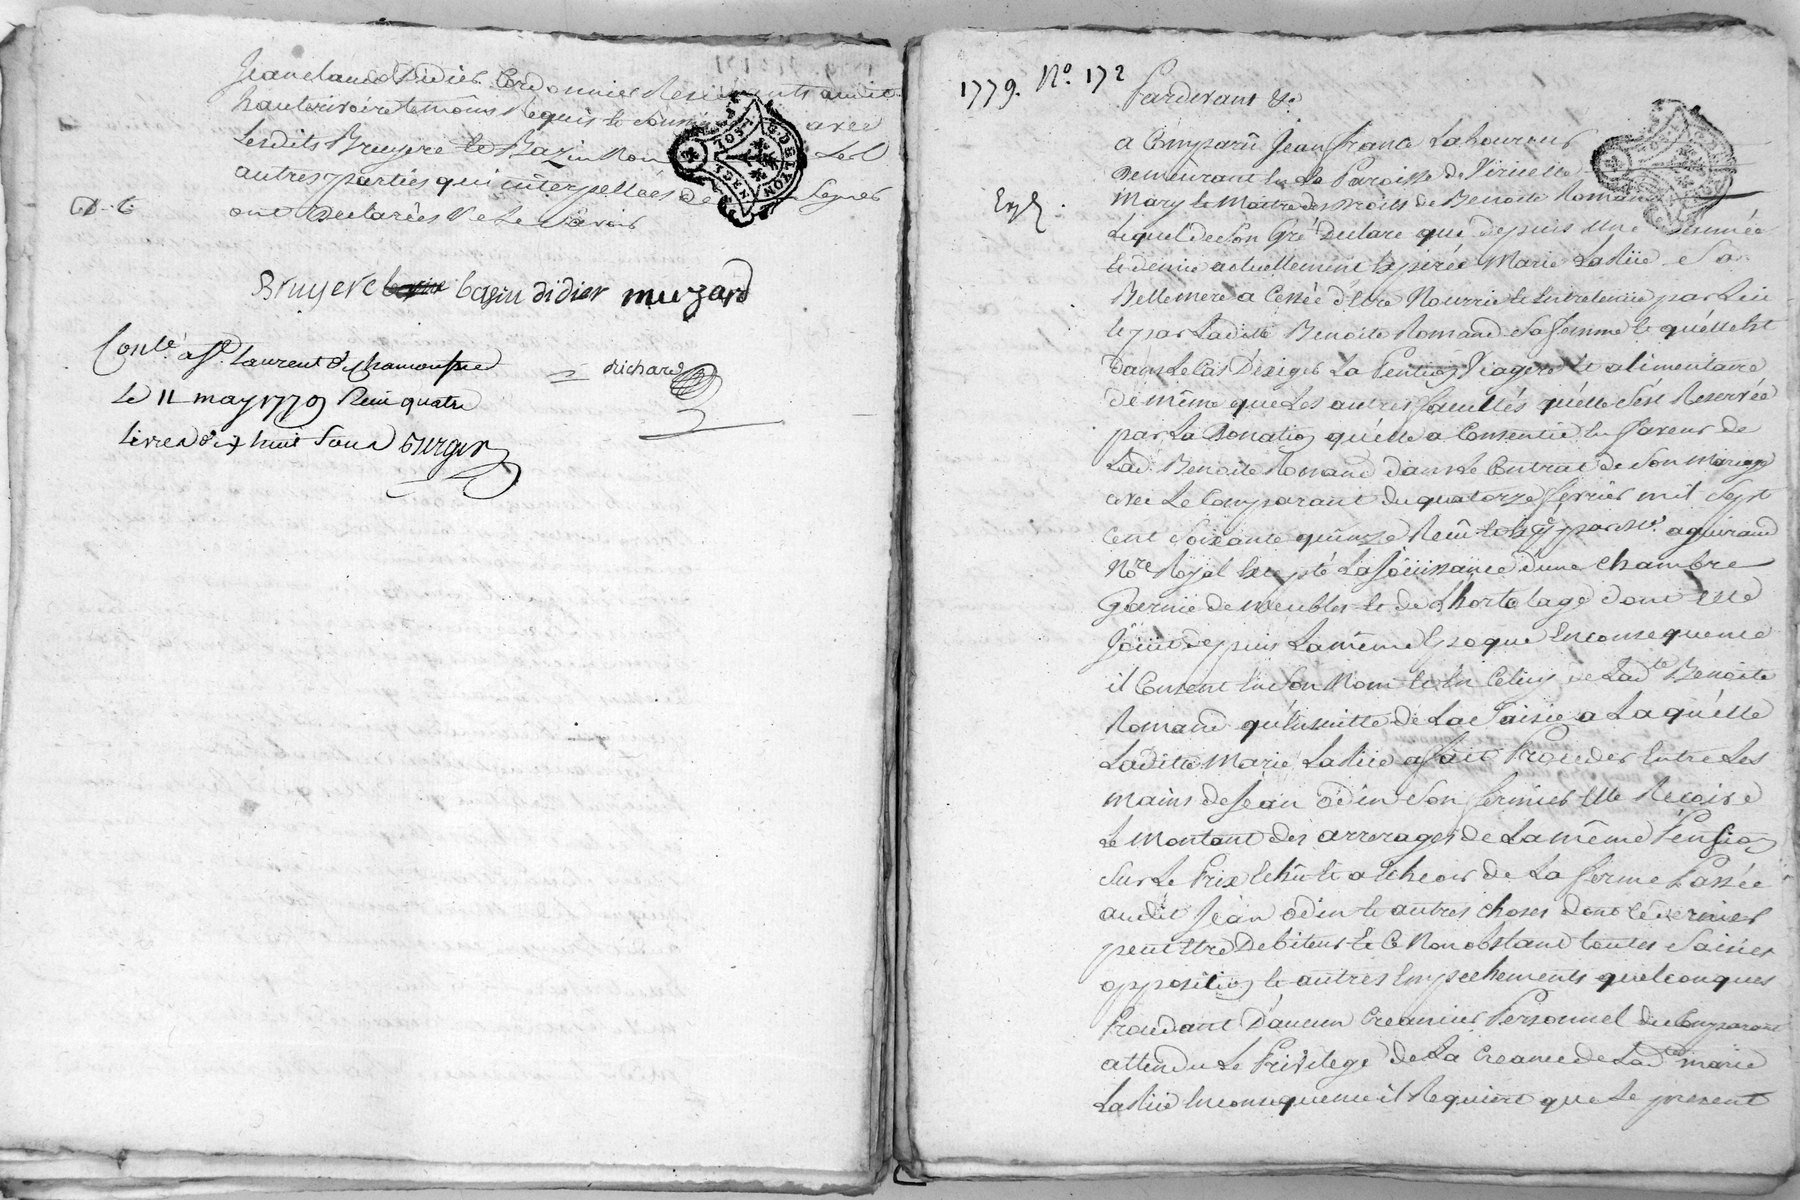 Jean claude Didier Cordonnier Residents audit
hauterivoire temoins Requis le soussignés avec
Lesdits Bruyere le Bazin non Les
autres parties qui interpellées de Signer
ont Declarées Ne Le Savoir
Bruyere basin didier muzard
Conlé a St. Laurent de Chamousset
Le 11 may 1779 Reçu quatre
livres dix huit Sous Burgin
Richard
1779. No. 172
Pardevant &c
a Comparû Jean france Lahourous
Demeurant en La Paroisse de Viricelle
Exp.
Mary le Maitre des Droits de Benoite Romand
Lequel de Son Gré Declare que depuis une année
Et demie actuellement Expirée Marie Lariüe Sa
Bellemere a Cessée d'être Nourrie et Entretenüe par Lui
et par Laditte Benoite Romand Sa femme et qu'elle Est
Dans Le Cas D'exiger La Pention Viagere et alimentaire
de même que Les autres facultés qu'elle S'est Reservée
par La Donation qu'elle a Consentie En faveur de
Lad. Benoite Romand dans Le Contrat de Son Mariage
avec Le Comparant du quatorze fevrier mil Sept
Cent Soixante quinze Reçu par Me. aguiraud
Nre. Royal Excepté La Joüissance d'une Chambre
Garnie de meubles et de L'hortolage dont Elle
Joüit depuis La même Epoque En consequence
il Consent En Son Nom et En Celuy de Ladte Benoite
Romand qu'En suitte de La Saisie a Laquelle
Laditte Marie Lariüe a fait Proceder Entre Les
mains de Jean Odin Son fermier Elle Reçoive
Le Montant des arrerages de La même Pension
Sur Le Prix Echû et a Echeoir de La ferme Passée
audit Jean Odin et autres choses dont Ce dernier
peut Etre Debiteur Et Ce Nonobstant toutes Saisies
opposition et autres Empechements quelconques
Procedant D'aucun Creancier Personnel du Comparant
attendu Le Privilege De La Creance de Ladte marie
Lariüe En consequence il Requiert que Le present